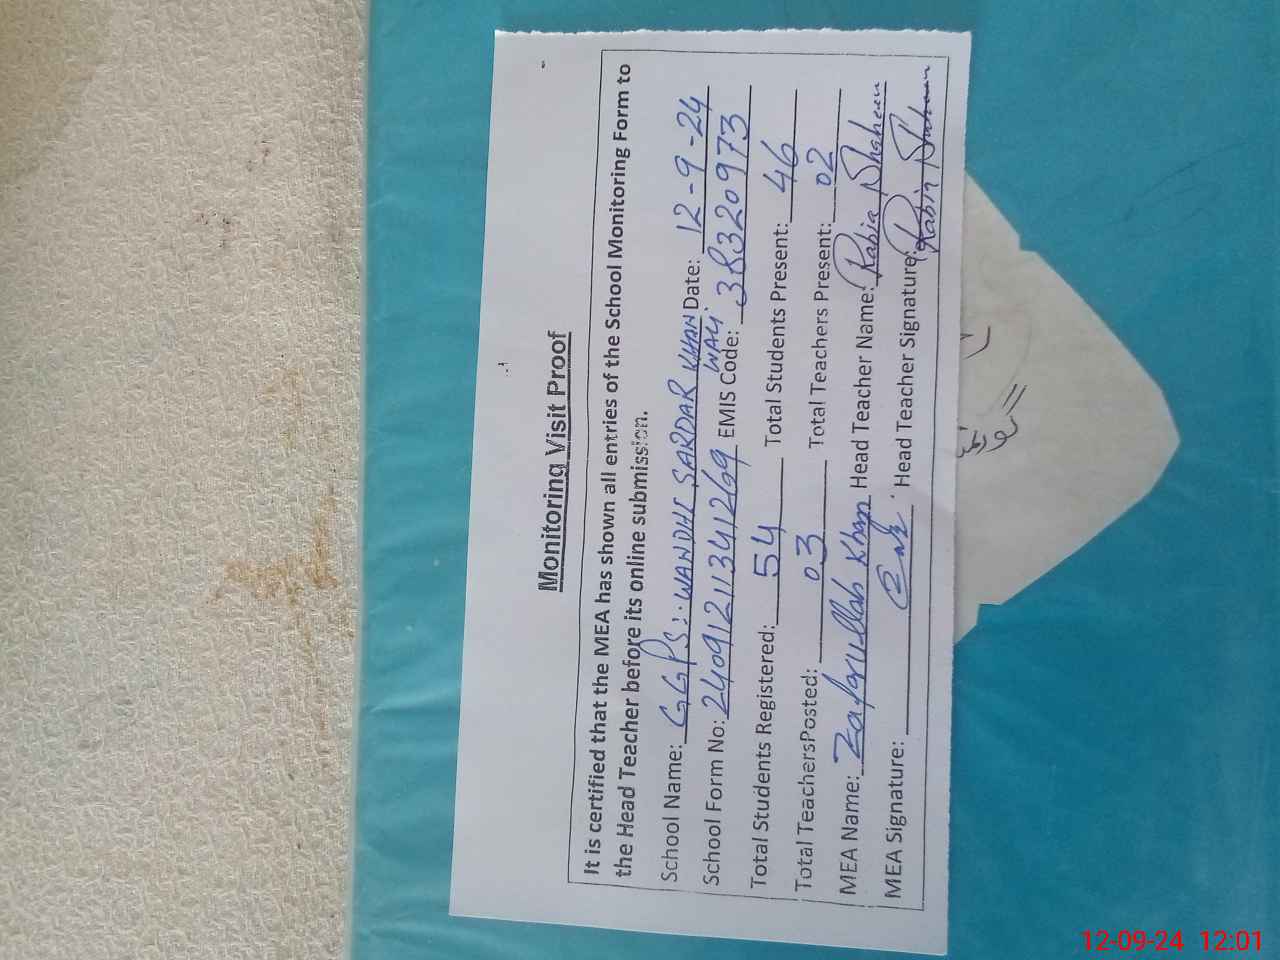 Monitoring Visit Proof
It is certified that the MEA has shown all entries of the School Monitoring Form to
the Head Teacher before its online submission.
School Name: GGPS: WANDHI SARDAR KHAN WALI Date: 12-9-24
School Form No: 24091211341269 EMIS Code: 38320973
Total Students Registered: 54 Total Students Present: 46
Total TeachersPosted: 03 Total Teachers Present: 02
MEA Name: Zafarullah Khan Head Teacher Name: Rabia Shaheen
MEA Signature: Head Teacher Signature: Rabia Shaheen
12-09-24 12:01